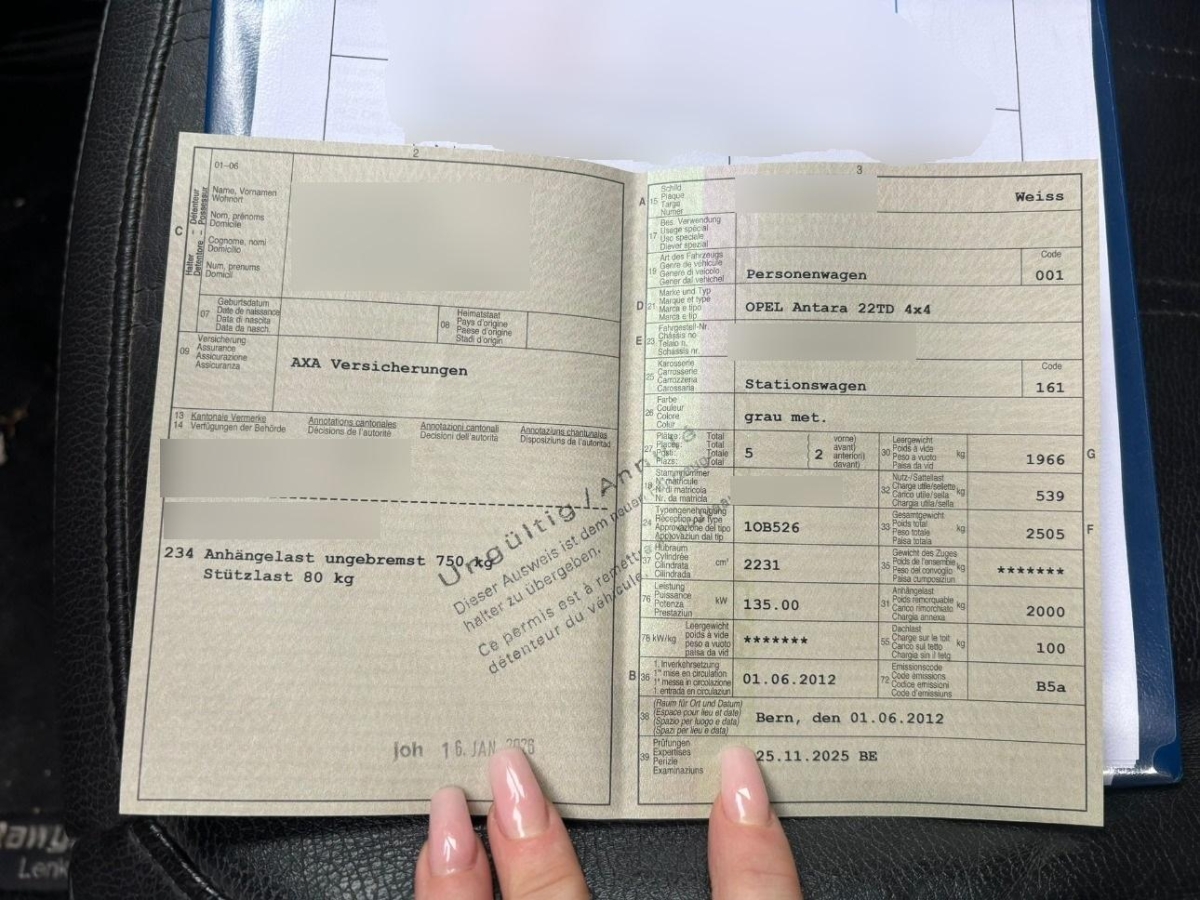 2
01-06
C
Halter - Détenteur
Detentore - Possessur
Name, Vornamen
Wohnort
Nom, prénoms
Domicile
Cognome, nomi
Domicilio
Num, prenums
Domicil
07
Geburtsdatum
Date de naissance
Data di nascita
Data da nasch.
08
Heimatstaat
Pays d'origine
Paese d'origine
Stadi d'origin
09
Versicherung
Assurance
Assicurazione
Assicuranza
AXA Versicherungen
13 Kantonale Vermerke
14 Verfügungen der Behörde
Annotations cantonales
Décisions de l'autorité
Annotazioni cantonali
Decisioni dell'autorità
Annotaziuns chantunalas
Disposiziuns da l'autoritad
234 Anhängelast ungebremst 750 kg
Stützlast 80 kg
Ungültig / Ann
Dieser Ausweis ist dem neuen
halter zu übergeben.
Ce permis est à remettre
détenteur du véhicule
joh 16. JAN. 2026
3
A 15
Schild
Plaque
Targa
Numer
Weiss
17
Bes. Verwendung
Usage spécial
Uso speciale
Diever spezial
19
Art des Fahrzeugs
Genre de véhicule
Genere di veicolo
Gener dal vehichel
Personenwagen
Code
001
D 21
Marke und Typ
Marque et type
Marca e tipo
Marca e tip
OPEL Antara 22TD 4x4
E 23
Fahrgestell-Nr.
Châssis no
Telaio n.
Schassis nr.
25
Karosserie
Carrosserie
Carrozzeria
Carossaria
Stationswagen
Code
161
26
Farbe
Couleur
Colore
Colur
grau met.
27
Plätze: Total
Places: Total
Posti: Totale
Plazs: Total
5
2
vorne)
avant)
anteriori)
davant)
30
Leergewicht
Poids à vide
Peso a vuoto
Paisa da vid
kg
1966
G
18
Stammnummer
N° matricule
N. di matricola
Nr. da matricla
32
Nutz-/Sattellast
Charge utile/sellette
Carico utile/sella
Chargia utila/sella
kg
539
24
Typengenehmigung
Réception par type
Approvazione del tipo
Approvaziun dal tip
1OB526
33
Gesamtgewicht
Poids total
Peso totale
Paisa totala
kg
2505
F
37
Hubraum
Cylindrée
Cilindrata
Cilindrada
cm³
2231
35
Gewicht des Zuges
Poids de l'ensemble
Peso del convoglio
Paisa cumposiziun
kg
*******
76
Leistung
Puissance
Potenza
Prestaziun
kW
135.00
31
Anhängelast
Poids remorquable
Carico rimorchiato
Chargia annexa
kg
2000
78 kW/kg
Leergewicht
poids à vide
peso a vuoto
paisa da vid
*******
55
Dachlast
Charge sur le toit
Carico sul tetto
Chargia sin il tetg
kg
100
B 36
1. Inverkehrsetzung
1re mise en circulation
1a messa in circolazione
1. entrada en circulaziun
01.06.2012
72
Emissionscode
Code émissions
Codice emissioni
Code d'emissiuns
B5a
38
(Raum für Ort und Datum)
(Espace pour lieu et date)
(Spazio per luogo e data)
(Spazi per lieu e data)
Bern, den 01.06.2012
39
Prüfungen
Expertises
Perizie
Examinaziuns
25.11.2025 BE
Lenk